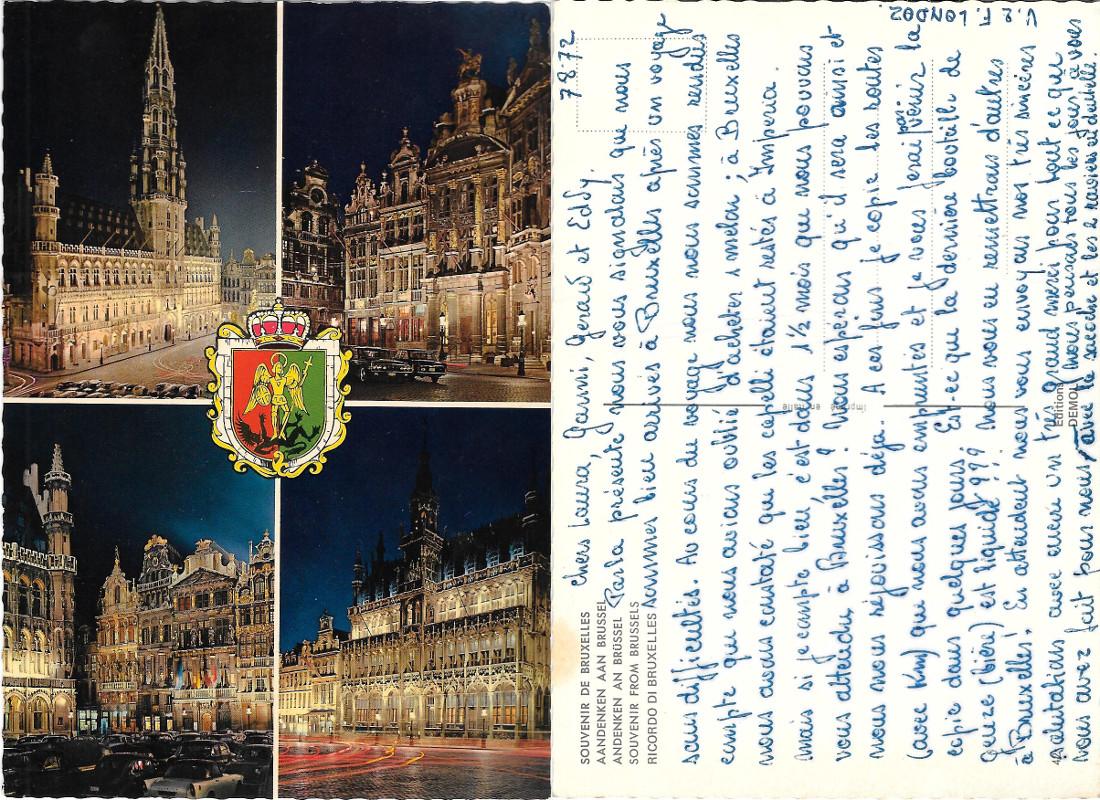 7.8.72
Chers Laura, Gianni, Gerard et Eddy.
Par la présente nous vous signalons que nous
sommes bien arrivés à Bruxelles après un voyage
sans difficultés. Au cours du voyage nous nous sommes rendus
compte que nous avions oublié d'acheter 1 melon; à Bruxelles
nous avons constaté que les capelli étaient restés à Imperia.
mais si je compte bien c'est dans 1 1/2 mois que nous pouvons
vous attendre à Bruxelles? Nous esperons qu'il sera ainsi et
nous nous réjouissons déja. A ces fins je copie les routes
(avec Km) que nous avons empruntés et je vous ferai par-
venir la
copie dans quelques jours. Est-ce que la dernière bouteille de
Gueuze (bière) est liquidé??? Nous vous en remettrons d'autres
à Bruxelles! En attendant nous vous envoyons nos très sincères
salutations avec encore un très grand merci pour tout ce que
vous avez fait pour nous, nous pensons tous les jours à vous
avec le secchi et les 2 navire et douille.
V. & F. LONDOZ.
SOUVENIR DE BRUXELLES
AANDENKEN AAN BRUSSEL
ANDENKEN AN BRÜSSEL
SOUVENIR FROM BRUSSELS
RICORDO DI BRUXELLES
Imprimé en Italie
Edition
DEMOL